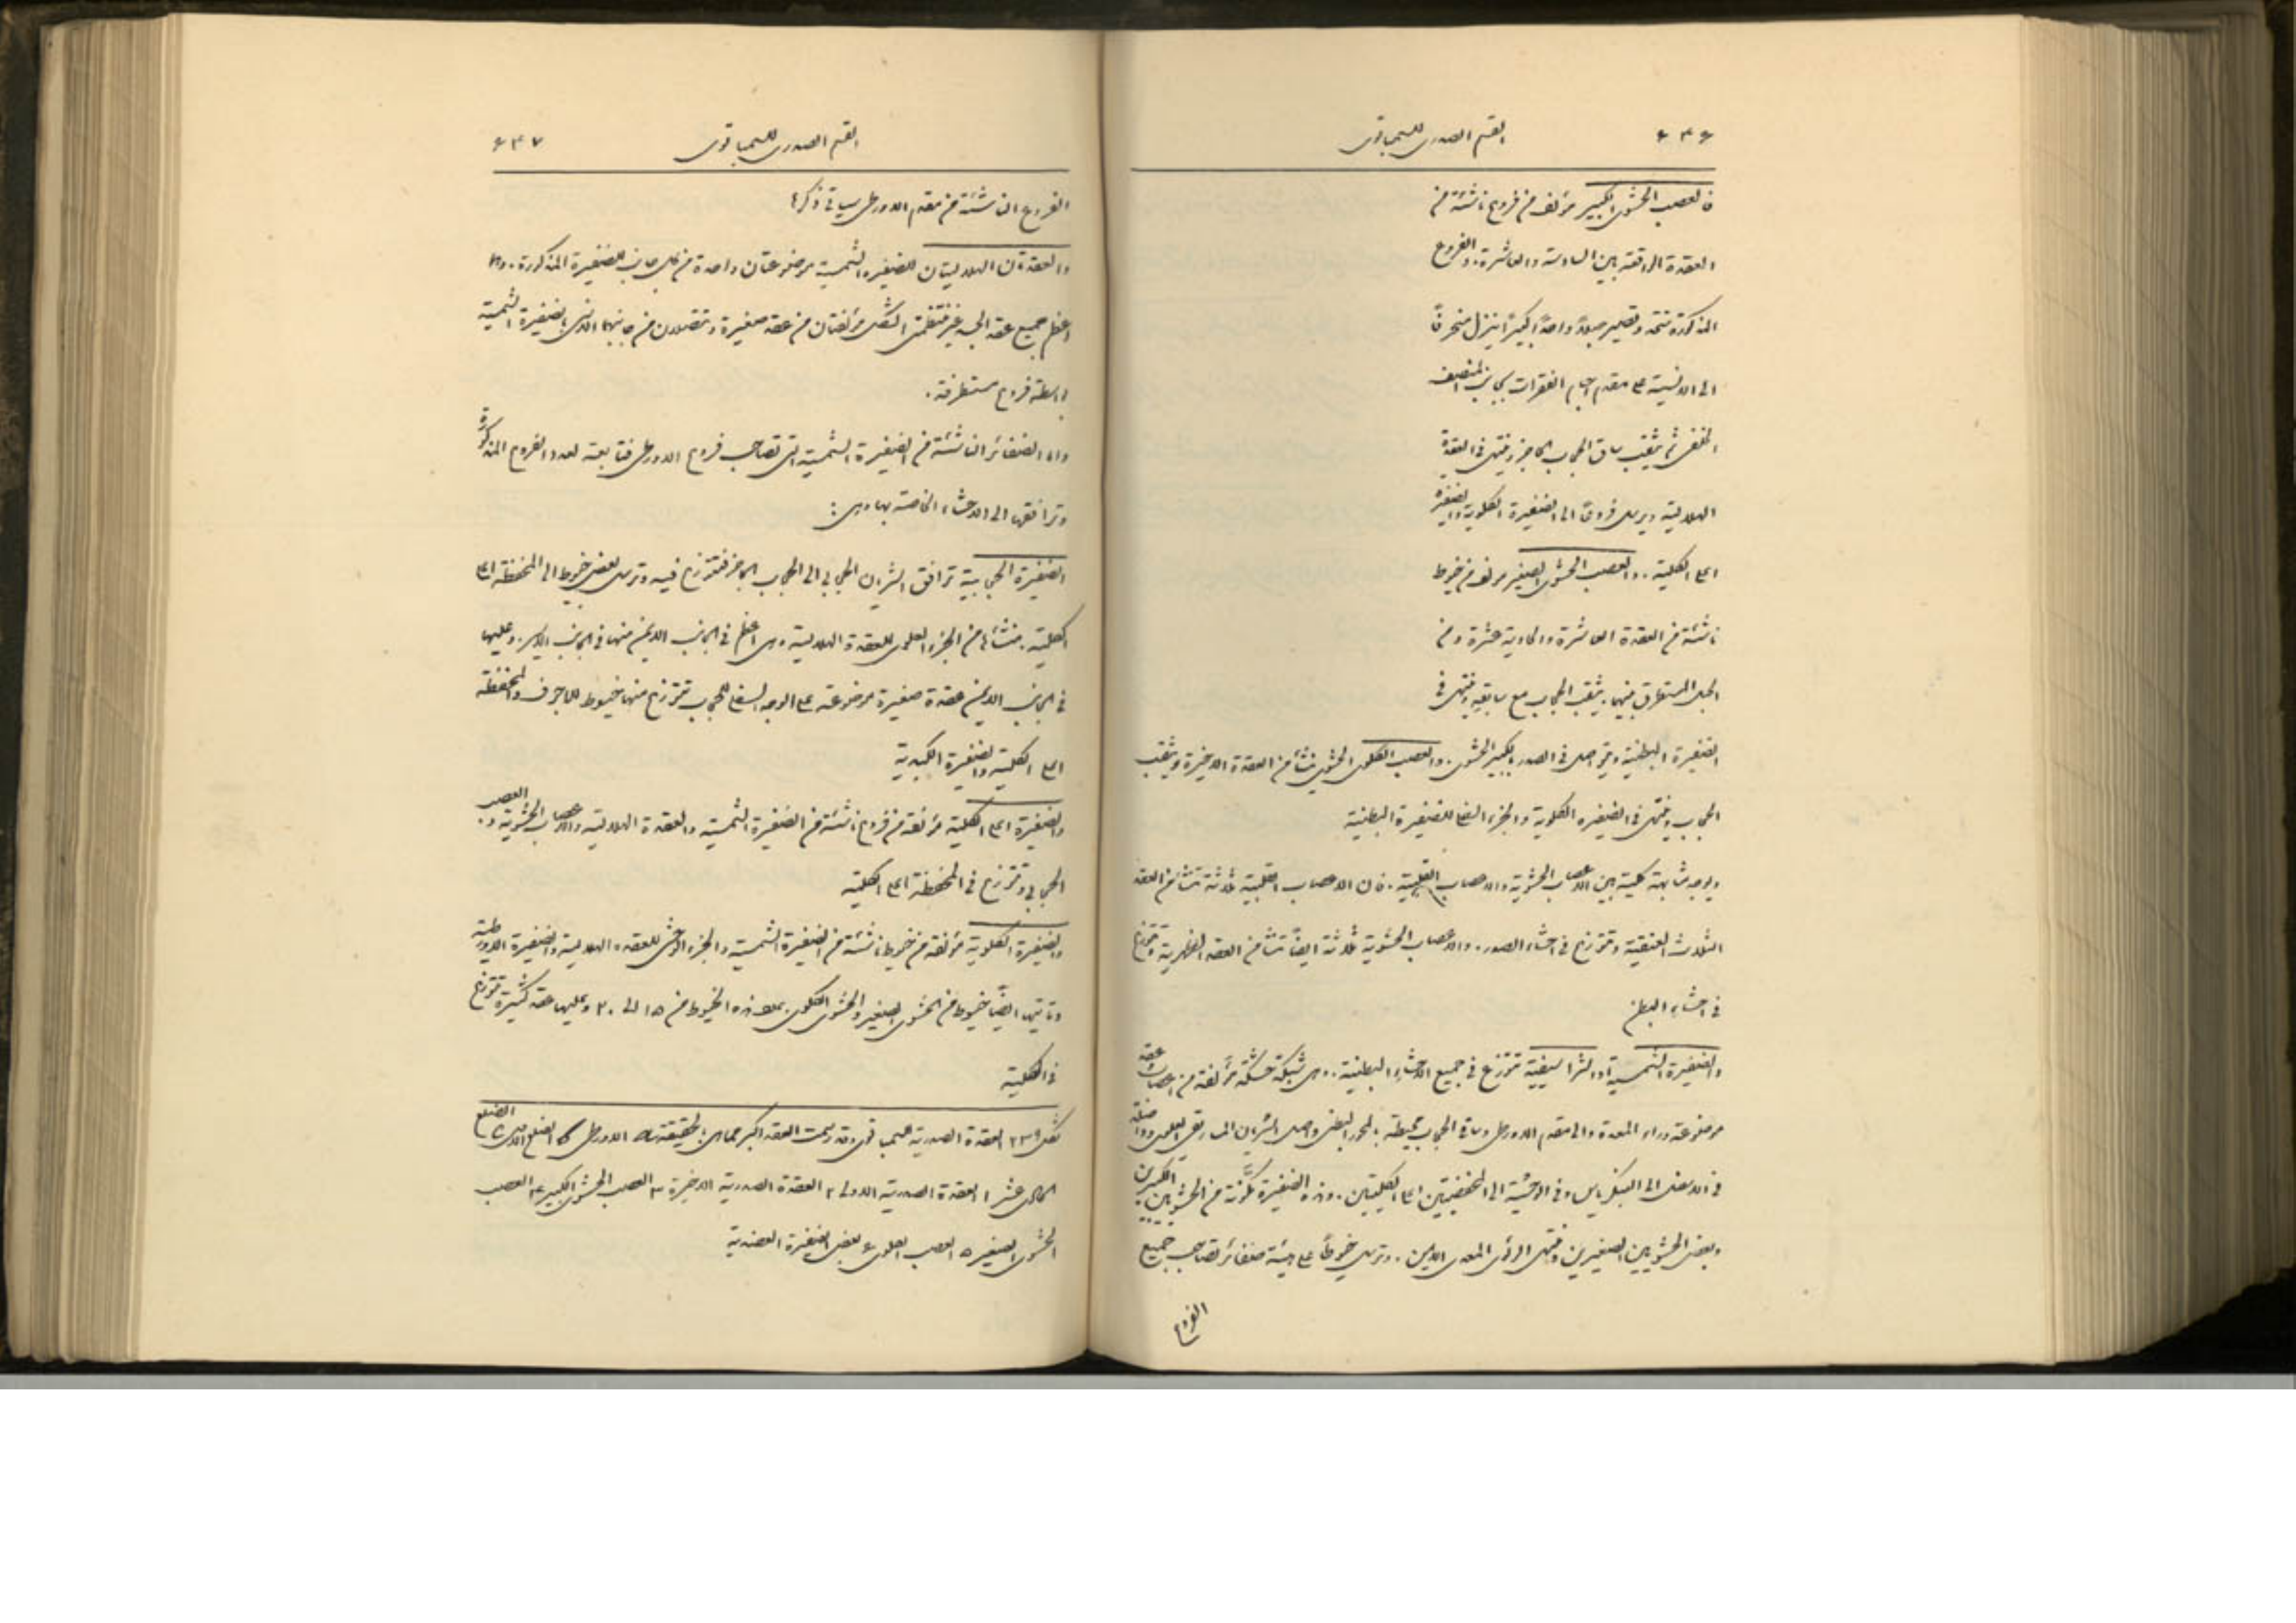 ٦٤٦ القسم الصدري للسمباتوي
فالعصب الحشوي الكبير مؤلف من فروع ناشئة من
العقدة الواقعة بين السادسة والعاشرة. والفروع
المذكورة تتحد وتصير حبلاً واحداً كبيراً ينزل منحرفاً
الى الانسية على مقدم اجسام الفقرات بجانب المنصف
الخلفي ثم يثقب ساق الحجاب الحاجز وينتهي في العقدة
الهلالية ويرسل فروعاً الى الضفيرة الكلوية والضفيرة
اعلى الكلية. والعصب الحشوي الصغير مؤلف من خيوط
ناشئة من العقدة العاشرة والحادية عشرة ومن
الحبل المستعرق بينهما. يثقب الحجاب مع سابقه وينتهي في
الضفيرة البطنية ويتواصل في الصدر بالكبير الحشوي. والعصب الكلوي الحشوي ينشأ من العقدة الاخيرة ويثقب
الحجاب وينتهي في الضفيره الكلوية والجزء السفلي للضفيرة البطنية
ويوجد مشابهة كلية بين الاعصاب الحشوية والاعصاب القلبية. فان الاعصاب القلبية ثلاثة تنشأ من العقد
الثلاث العنقية وتتوزع في احشاء الصدر. والاعصاب الحشوية ثلاثة ايضاً تنشأ من العقد الظهرية وتتوزع
في احشاء البطن
والضفيرة الشمسية او الشراسيفية تتوزع في جميع الاحشاء البطنية. وهي شبكة مشتبكة مؤلفة من اعصاب وعقد
موضوعة وراء المعدة والى مقدم الاورطى وساقي الحجاب محيطة بالمحور البطني واصل الشريان المساريقي العلوي وواصلة
في الاسفل الى البنكرياس وفي الوحشية الى المحفظتين اعلى الكليتين. وهذه الضفيرة مكونة من الحشويين الكبيرين
وبعض الحشويين الصغيرين ومنتهى الرئوي المعدي الايمن. وترسل خيوطاً على هيئة ضفائر تصاحب جميع
الفروع
القسم الصدري للسمباتوي ٦٤٧
الفروع الناشئة من مقدم الاورطى سياتي ذكرها
والعقدتان الهلاليتان للضفيره الشمسية موضوعتان واحدة من كل جانب للضفيرة المذكورة. وهما
اعظم جميع عقد الجسد غير منتظمتي الشكل مؤلفتان من عقد صغيرة وتتصلان من جانبهما الانسي بالضفيرة الشمسية
بواسطة فروع مستطرفة.
واما الضفائر الناشئة من الضفيرة الشمسية التي تصاحب فروع الاورطى فتابعة لعدد الفروع المذكورة
وترافقها الى الاحشاء الخاصة بها وهي:
الضفيرة الحجابية ترافق الشريان الحجابي الى الحجاب الحاجز فتتوزع فيه وترسل بعض خيوط الى المحفظة اعلى
الكلية. منشأها من الجزء العلوي للعقدة الهلالية وهي اعظم في الجانب الايمن منها في الجانب الايسر. وعليها
في الجانب الايمن عقدة صغيرة موضوعة على الوجه السفلي للحجاب تتوزع منها خيوط للاجوف والمحفظة
اعلى الكلية والضفيرة الكبدية
والضفيرة اعلى الكلية مؤلفة من فروع ناشئة من الضفيرة الشمسية والعقدة الهلالية والاعصاب الحشوية والعصب
الحجابي وتتوزع في المحفظة اعلى الكلية
والضفيرة الكلوية مؤلفة من خيوط ناشئة من الضفيرة الشمسية والجزء الوحشي للعقده الهلالية والضفيرة الاورطية
وتاتيها ايضاً خيوط من الحشوي الصغير والحشوي الكلوي. عدد هذه الخيوط من ١٥ الى ٢٠ وعليها عقد كثيرة تتوزع
في الكلية
شكل ٢٣٩ العقدة الصدرية للسمباتوي وقد رسمت العقد اكبر مما هي بالحقيقة الاورطى الضلع الاول الضلع
الحادي عشر ١ العقدة الصدرية الاولى ٢ العقدة الصدرية الاخيرة ٣ العصب الحشوي الكبير ٤ العصب
الحشوي الصغير ٥ العصب الكلوي ٦ بعض الضفيرة العضدية